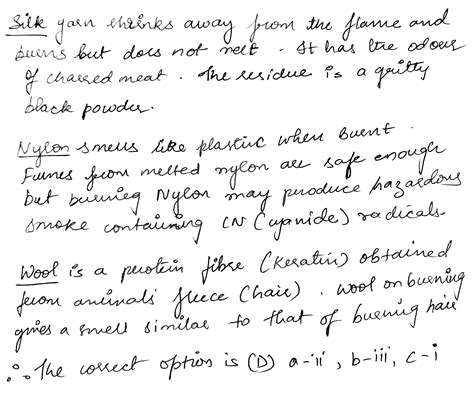 Silk yarn shrinks away from the flame and
burns but does not melt. It has the odour
of charred meat. The residue is a gritty
black powder.
Nylon smells like plastic when burnt.
Fumes from melted nylon are safe enough
but burning Nylon may produce hazardous
smoke containing CN (cyanide) radicals.
Wool is a protein fibre (Keratin) obtained
from animals fleece (hair). Wool on burning
gives a smell similar to that of burning hair
∴ The correct option is (D) a-ii, b-iii, c-i